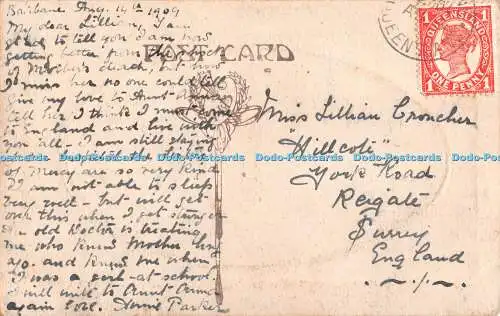 Brisbane Aug. 14th 1909
My dear Lillian, I am
glad to tell you I am now
getting better from the shock
of Mother's death,
I miss her no one could tell
give my love to Aunt
tell her I think I must come
to England and live with
you all - I am still staying
of Mercy are so very kind
I am not able to sleep
very well - but will get
over this when I get stronger
the old Doctor is treating
me who knew Mother long
ago. and knew me when
I was a girl - at school
I will write to Aunt
again love. Annie Parker
POST CARD
QUEENSLAND
1 ONE PENNY 1
QUEEN
Miss Lillian Croncher
"Hillcote"
York Road
Reigate
Surrey
England
Dodo-Postcards Dodo-Postcards Dodo-Postcards Dodo-Postcards Dodo-Postcards